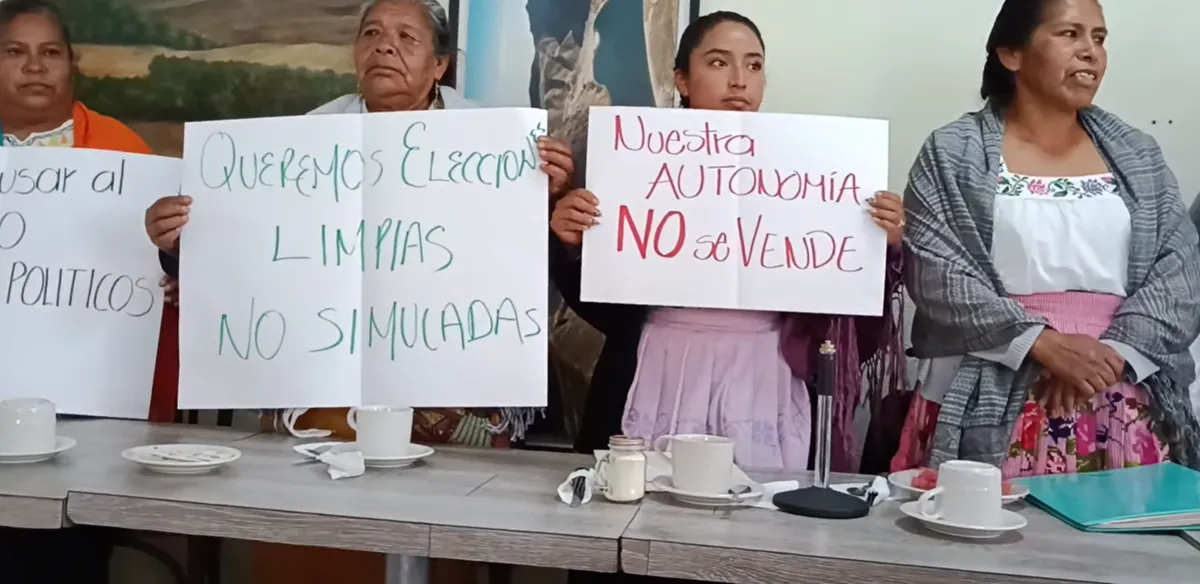 usar al
O
POLITICOS
QUEREMOS ELECCIONES
LIMPIAS
NO SIMULADAS
Nuestra
AUTONOMÍA
NO se VENDE